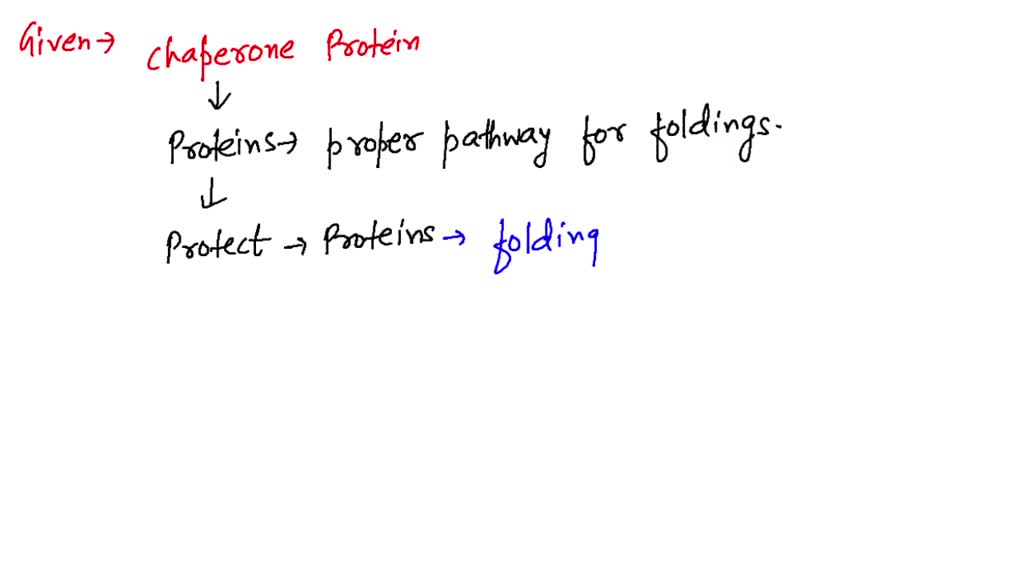 Given → chaperone Protein
↓
Proteins → proper pathway for foldings.
↓
Protect → Proteins → folding